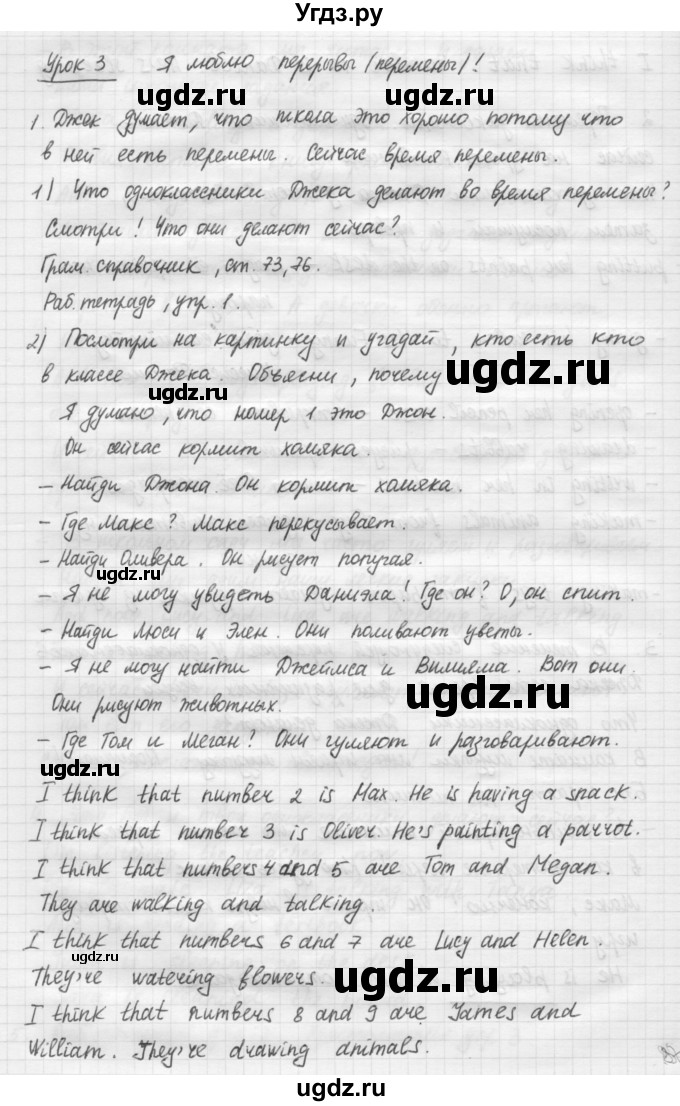 Угдз.ру
Урок 3 Я люблю перерывы (перемены)!
ugdz.ru ugdz.ru
1. Джек думает, что школа это хорошо потому что
в ней есть перемены. Сейчас время перемены.
1) Что одноклассники Джека делают во время перемены?
Смотри! Что они делают сейчас?
Грам. справочник, ст. 73, 76.
Раб. тетрадь, упр. 1.
2) Посмотри на картинку и угадай, кто есть кто
в классе Джека. Объясни, почему
ugdz.ru ugdz.ru
Я думаю, что номер 1 это Джон.
Он сейчас кормит хомяка.
- Найди Джона. Он кормит хомяка.
- Где Макс? Макс перекусывает.
ugdz.ru
- Найди Оливера. Он рисует попугая.
ugdz.ru
- Я не могу увидеть Даниэла! Где он? О, он спит.
- Найди Люси и Элен. Они поливают цветы.
- Я не могу найти Джеймса и Вилияма. Вот они.
ugdz.ru
Они рисуют животных.
- Где Том и Меган? Они гуляют и разговаривают.
ugdz.ru
I think that number 2 is Max. He is having a snack.
I think that number 3 is Oliver. He's painting a parrot.
ugdz.ru
I think that numbers 4 and 5 are Tom and Megan.
They are walking and talking.
I think that numbers 6 and 7 are Lucy and Helen.
They're watering flowers.
ugdz.ru
I think that numbers 8 and 9 are James and
William. They're drawing animals.
ugdz.ru